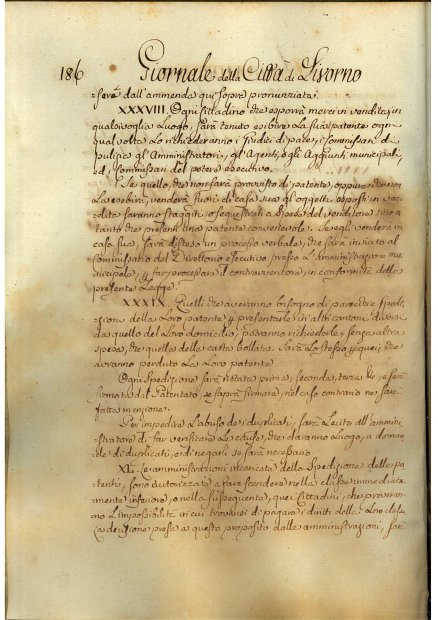 186 Giornale della Città di Livorno
=serà dall'ammenda qui sopra pronunziata.
XXXVIII. Ogni Cittadino che esporrà merci in vendita in
qualsivoglia Luogo, sarà tenuto esibire La sua patente ogni
qual volta Lo richiederanno i Giudici di pace, i Comessari di
pulizia gl'Amministratori, gl'Agenti, e gli Aggiunti municipali,
ed i Commissari del potere esecutivo.
Se quello, che non sarà provvisto di patente, oppure
La esibire, venderà fuori di casa sua gli oggetti esposti in ven-
dita saranno staggiti, o sequestrati a spese del venditore sino a
tanto che presenti una patente convenevole. Se egli venderà in
casa sua, sarà disteso un processo verbale, che sarà inviato al
Commissario del Direttorio esecutivo presso L'amministrazione mu-
nicipale, per far processare il contravventore, in conformità della
presente Legge.
XXXIX. Quelli che averanno bisogno di parecchie spedi-
zioni della Loro patente per presentarle in altri cantoni diversi
da quello del Loro domicilio, potranno richiederle senza altra
spesa, che quella della carta bollata. Sarà Lo stesso per quei, che
avranno perduto La Loro patente
Ogni Spedizione sarà notata prima, seconda, terza &c. e sarà
firmata dal Patentato se saprà firmare, nel caso contrario ne sarà
fatta menzione.
Per impedire L'abuso de' duplicati, sarà Lecito all'ammini-
=stratore di far verificare Le cause, che daranno Luogo, a doman-
de di duplicati, e di negarli se sarà necessario
XL. Le amministrazioni incaricate della Spedizione delle pa-
tenti, sono autorizzate a fare scendere nella classe
mente inferiore, o nella susseguente, quei Cittadini, che proveran-
no L'impossibilità in cui trovansi di pagare i diritti della Loro classe
La decisione prese a questo proposito dalle amministrazioni, sar